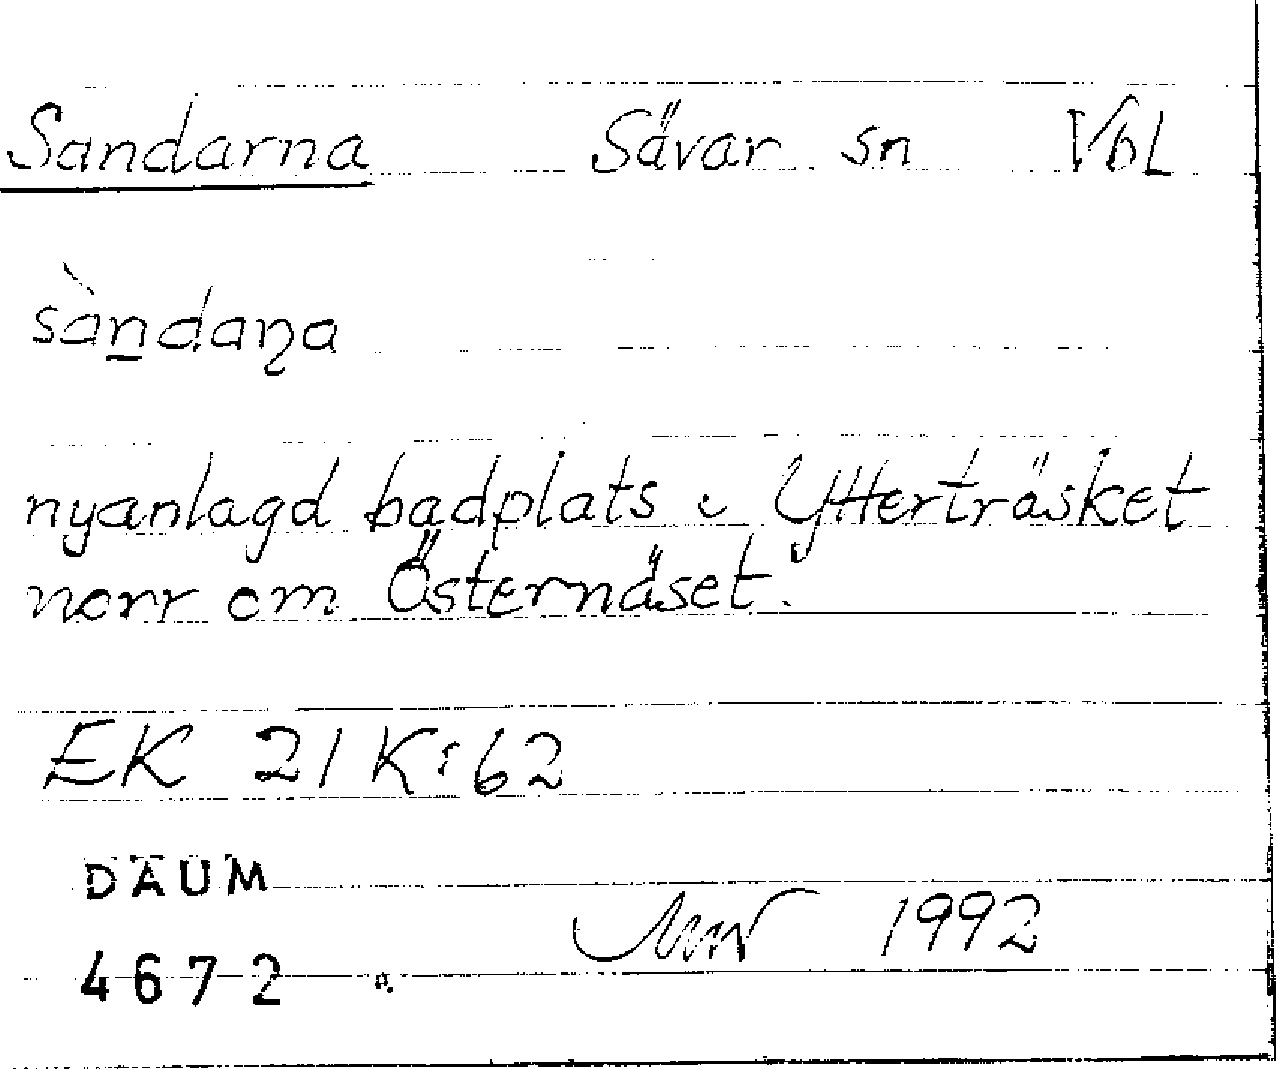 Sandarna Sävar sn Vbl
sàn̲daņa
nyanlagd badplats i Ytterträsket
norr om Östernäset.
EK 21K:62
DAUM
1992
4672